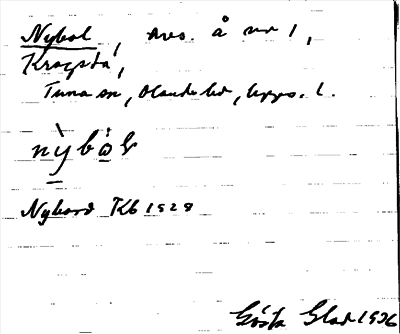 Nybol, avs. å nr 1,
Kragsta,
Tuna sn, Olands hd, Upps. l.
nỳbὸ̱l
Nybord Kb 1928
Gösta Glad 1936